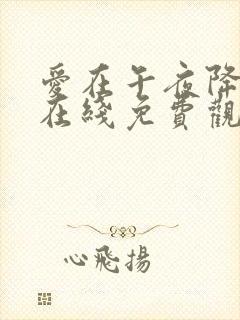 愛在午夜降
在綫免費觀
心飛揚